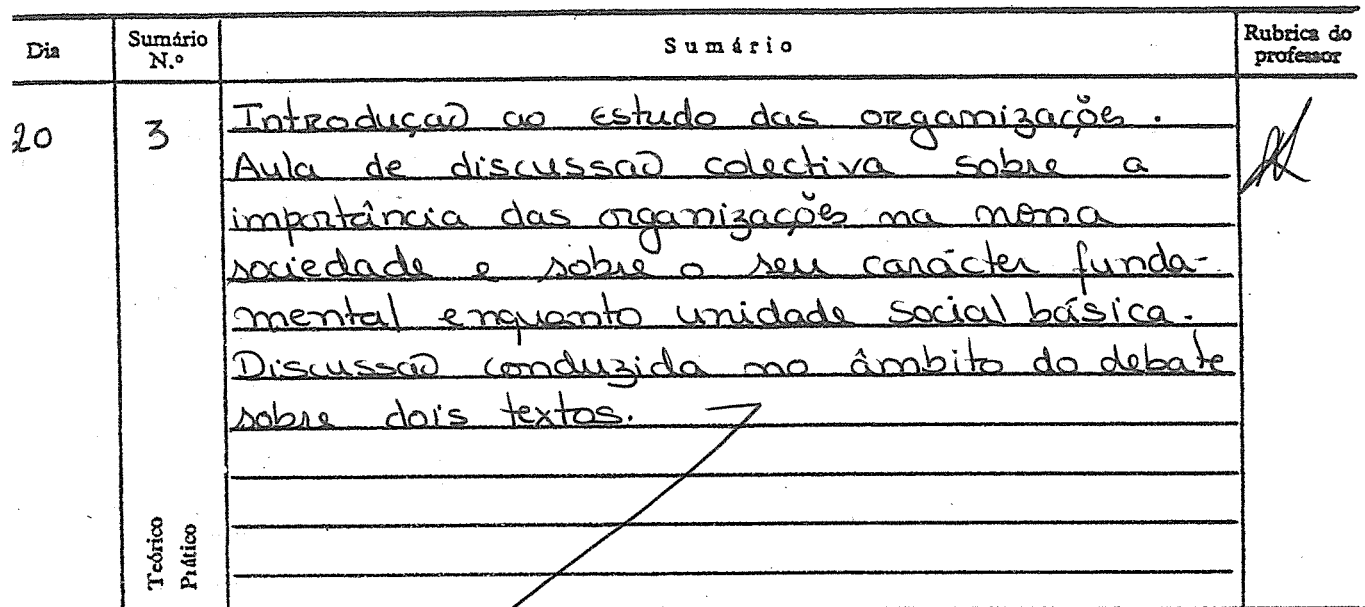 Dia Sumário N.º Sumário Rubrica do professor
20 3 Introdução ao estudo das organizações.
Aula de discussão colectiva sobre a
importância das organizações na nossa
sociedade e sobre o seu carácter funda-
mental enquanto unidade social básica.
Discussão conduzida no âmbito do debate
sobre dois textos.
Teórico
Prático